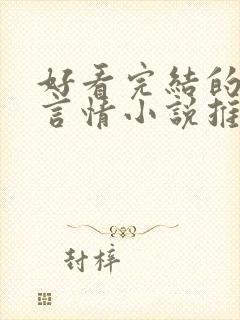 好看完結的
言情小説推
封梓